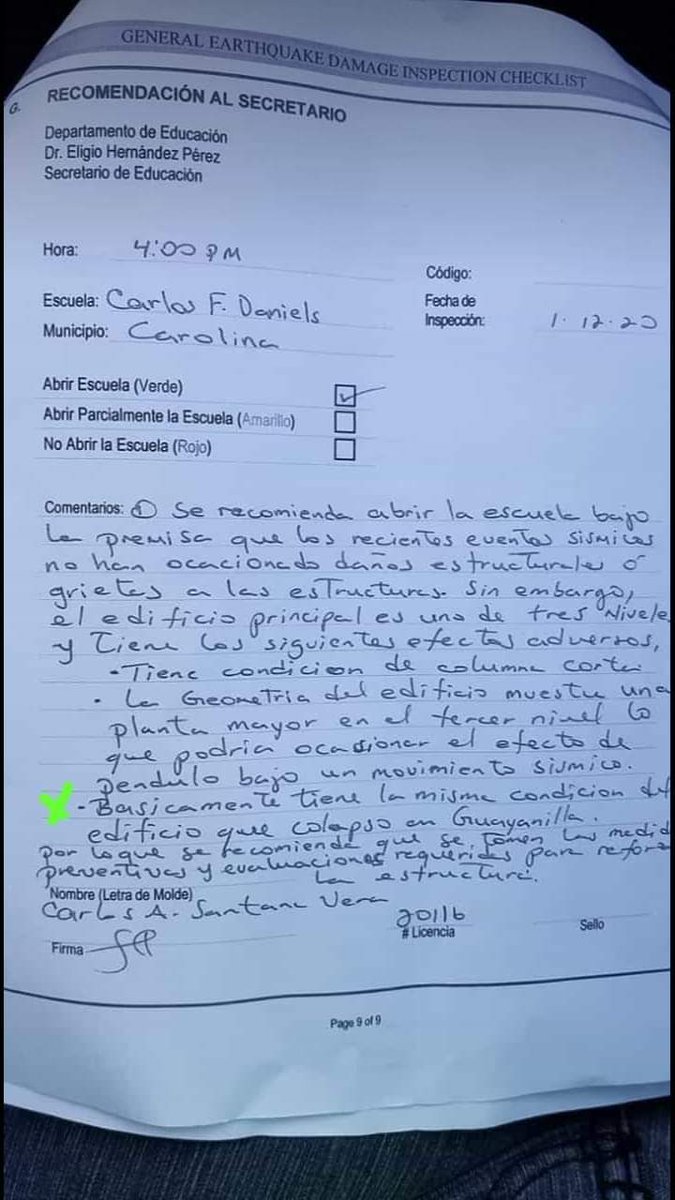 GENERAL EARTHQUAKE DAMAGE INSPECTION CHECKLIST
G. RECOMENDACIÓN AL SECRETARIO
Departamento de Educación
Dr. Eligio Hernández Pérez
Secretario de Educación
Hora: 4:00 PM
Código:
Escuela: Carlos F. Daniels
Fecha de
Inspección: 1.12.20
Municipio: Carolina
Abrir Escuela (Verde)
Abrir Parcialmente la Escuela (Amarillo)
No Abrir la Escuela (Rojo)
Comentarios: ① Se recomienda abrir la escuela bajo
la premisa que los recientes eventos sismicos
no han ocacionado daños estructurales ó
grietas a las estructuras. Sin embargo,
el edificio principal es uno de tres Nivele
y Tiene los siguientes efectos adversos,
- Tiene condicion de columna corta.
- La Geometria del edificio muestra una
planta mayor en el tercer nivel lo
que podria ocasionar el efecto de
pendulo bajo un movimiento sismico.
- Basicamente tiene la misma condicion del
edificio que colapso en Guayanilla.
por lo que se recomienda que se tomen las medid
preventivas y evaluaciones requeridas para refor
la estructura.
Nombre (Letra de Molde)
Carlos A. Santana Vera
20116
# Licencia
Sello
Firma
Page 9 of 9